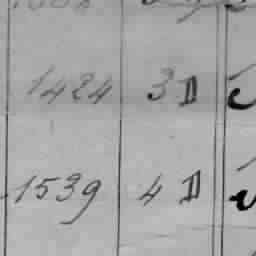 1424 3 D
1539 4 D